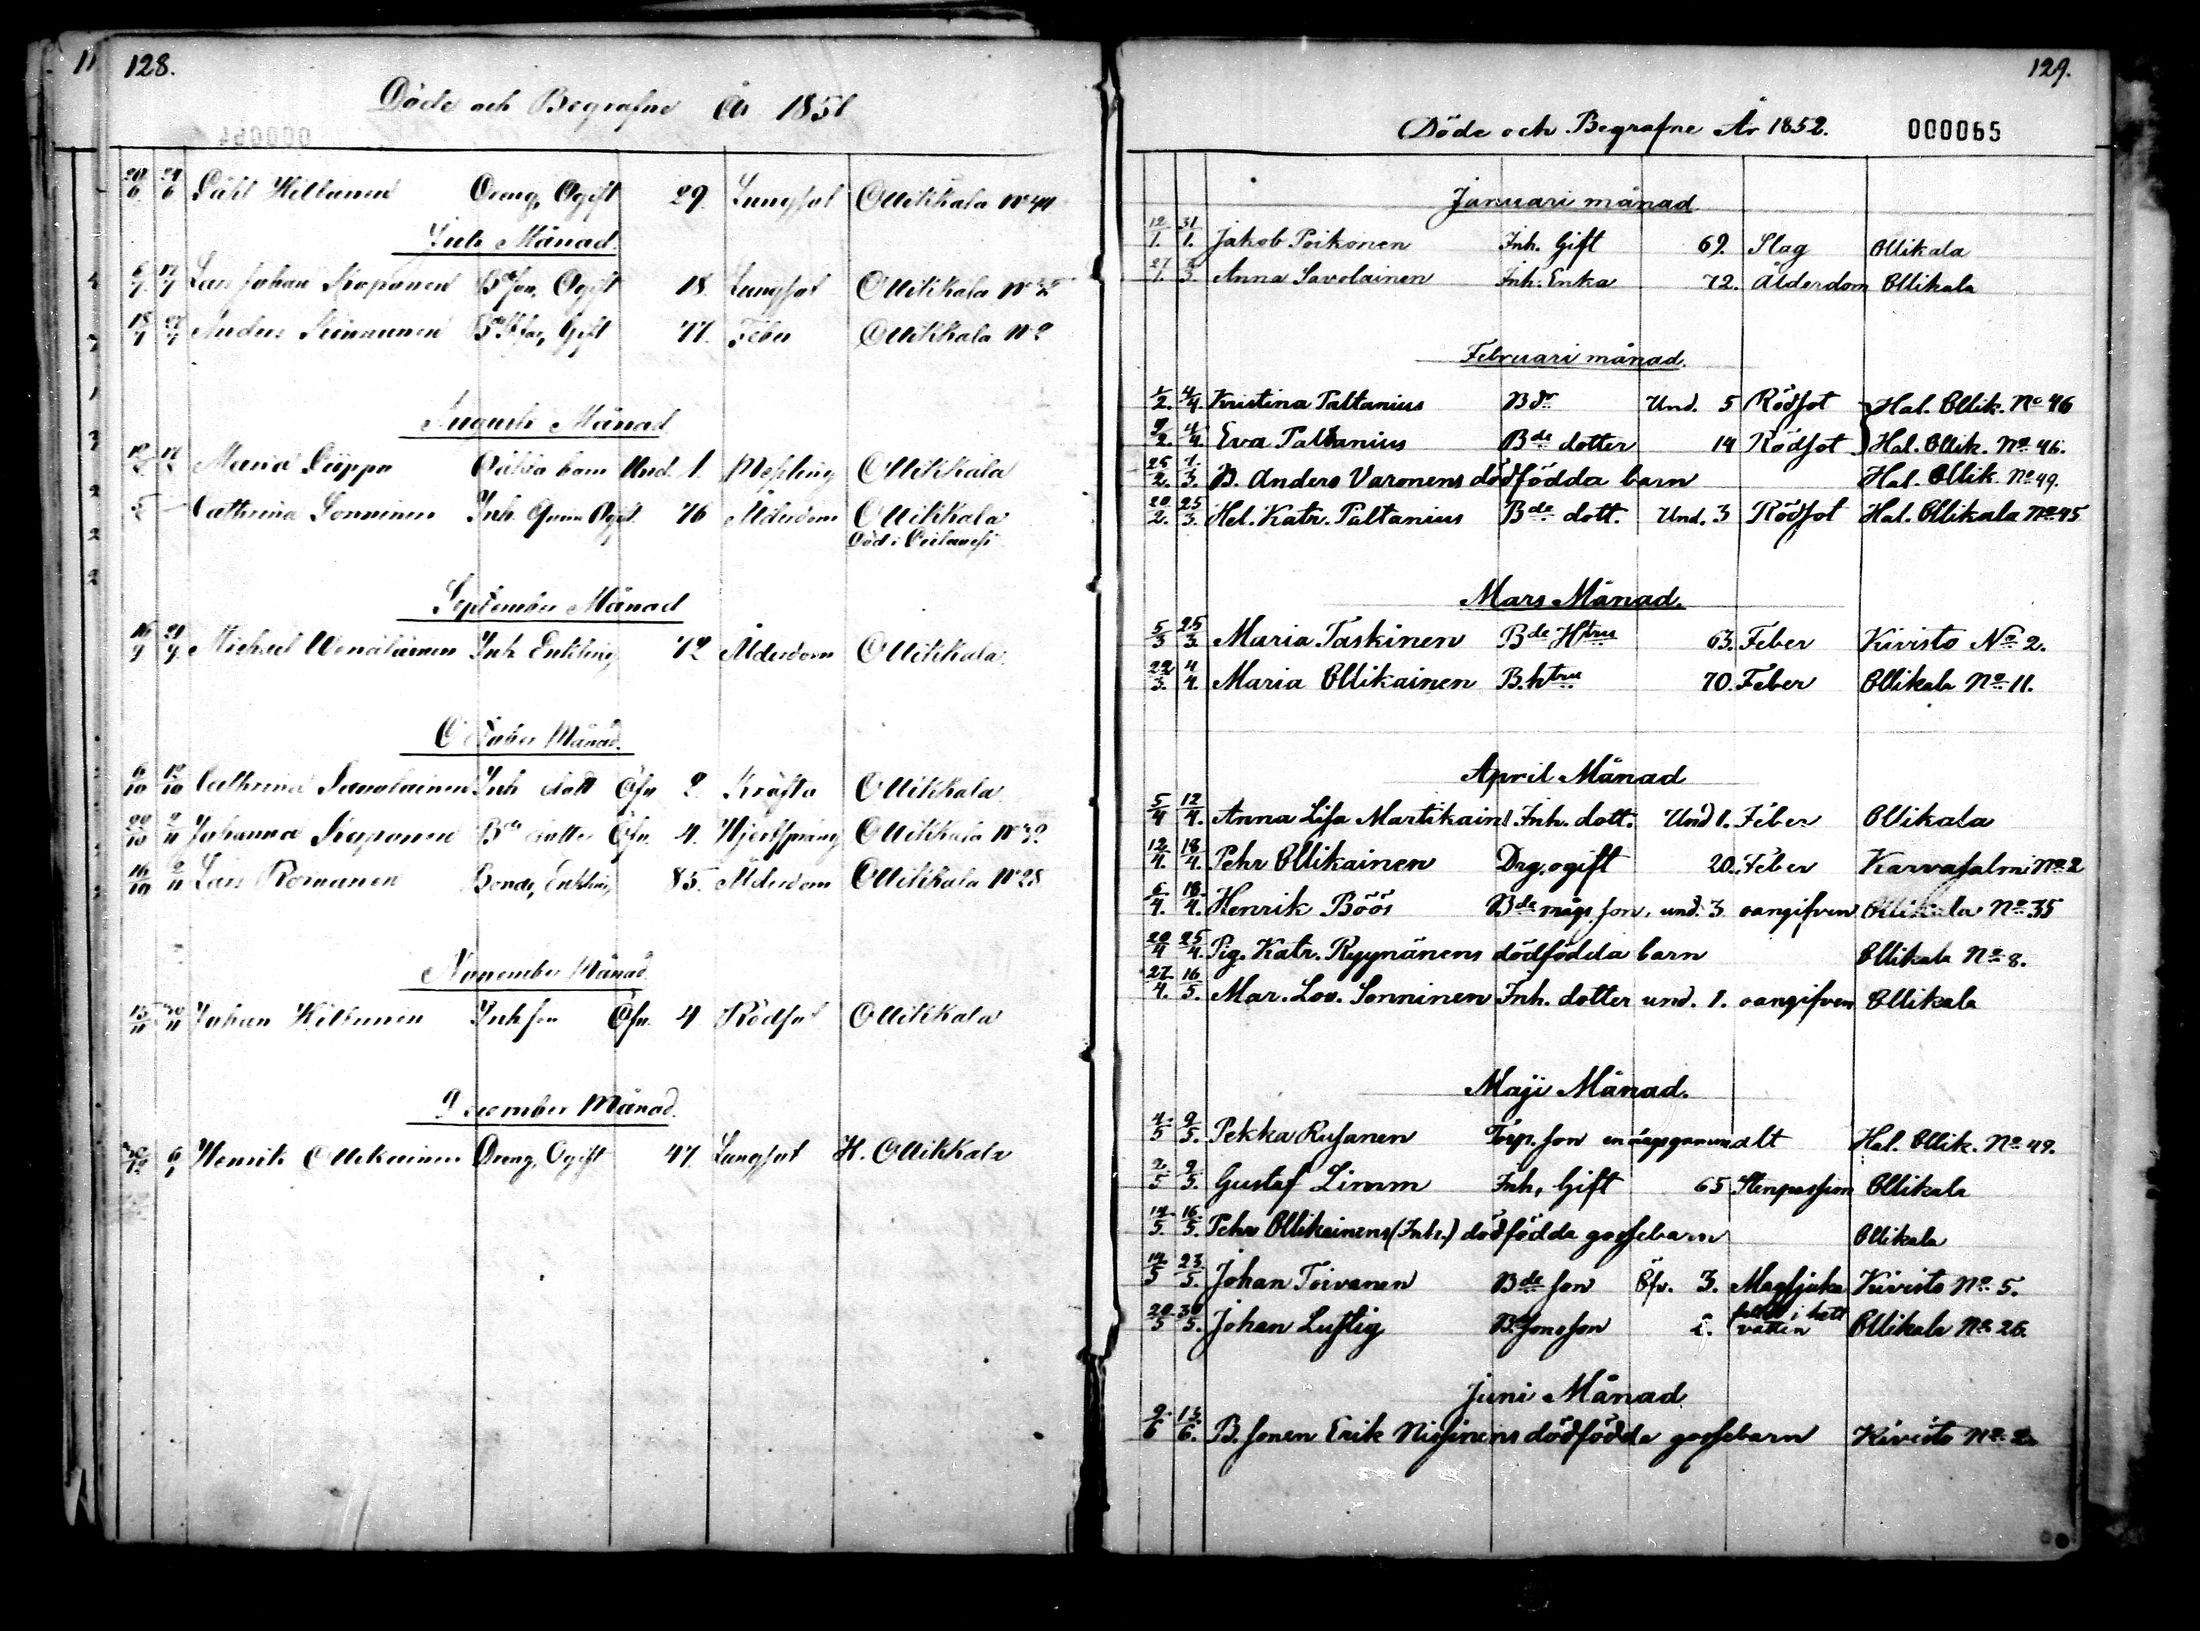 128.
Döde och Begrafne År 1851
20/6 29/6 Påhl Kiltunen Dreng, Ogift 29. Lungsot Ollikkala No 44
Juli Månad.
6/7 17/7 Lars Johan Kaponen Bde Son, Ogift 18. Lungsot Ollikkala No 32
18/7 27/7 Anders Kinnunen Gift 77. Feber Ollikkala No 2
Augusti Månad
Maria Piippo Oäkta barn Und. 1. Messling Ollikkala
Cathrina Sonninen Inh. Ogift. 76 Ålderdom Ollikkala
Död i
September Månad
16/9 21/9 Michael Wenäläinen Inh. Enkling 72 Ålderdom Ollikkala
October Månad.
6/10 12/10 Cathrina Savolainen Inh dott Öfv 2. Kräfta Ollikkala
29/10 2/11 Johanna Kaponen Bde dotter Öfv. 4. Hjertspräng Ollikkala No 32
16/10 2/11 Lars Romanen Bonde, Enkling 85. Ålderdom Ollikkala No 28
November Månad.
15/11 30/11 Johan Kiltunen Inh son Öfv. 4 Rödsot Ollikkala
December Månad.
30/12 6/1 Henrik Ollikainen Dreng, Ogift 47. Lungsot H. Ollikkala
129.
Döde och Begrafne År 1852.
000065
Januari månad
12/1. 31/1. Jakob Poikonen Inh. Gift 69. Slag Ollikala
27/1. 7/3. Anna Savolainen Inh. Enka 72. Ålderdom Ollikala
Februari månad.
1/2. 4/4. Kristina Paltanius Bdr Und. 5 Rödsot Hal. Ollik. No 46
9/2. 4/4. Eva Paltanius Bde dotter 14 Rödsot Hal. Ollik. No 46.
25/2. 1/3. B. Anders Varonens dödfödda barn Hal. Ollik. No 49.
20/2. 25/3. Hel. Katr. Paltanius Bde dott. Und. 3 Rödsot Hal. Ollikala No 45
Mars Månad.
5/3 25/3. Maria Taskinen Bde Htru 63. Feber Kivisto No 2.
22/3. 4/4. Maria Ollikainen B.htru 70. Feber Ollikala No 11.
April Månad
5/4 12/4. Anna Lisa Martikain! Inh. dott. Und 1. Feber Ollikala
12/4. 18/4. Pehr Ollikainen Drg. ogift 20. Feber Karvasalmi No 2
6/4. 18/4. Henrik Böös Bde mågs son. und. 3 oangifven Ollikala No 35
20/4 25/4. Pig. Katr. Ryynänens dödfödda barn Ollikala No 8.
27/4. 16/5. Mar. Lov. Sonninen Inh. dotter und. 1. oangifven Ollikala
Maji Månad.
4/5 9/5. Pekka Rusanen Torp. son alt Hal. Ollik. No 49.
2/5 9/5. Gustaf Limm Inh, Gift 65 Stenpassion Ollikala
14/5. 16/5. Pehr Ollikainens (Inh.) dödfödda gossebarn Ollikala
14/5 23/5. Johan Toivanen Bde son Öfv. 3. Magsjuka Kivisto No 5.
20/5 30/5. Johan Lustig B. sonsson 2. i hett vatten Ollikala No 26.
Juni Månad
9/6 13/6. B. sonen Erik Nissinens dödfödda gossebarn Kivisto No 2.